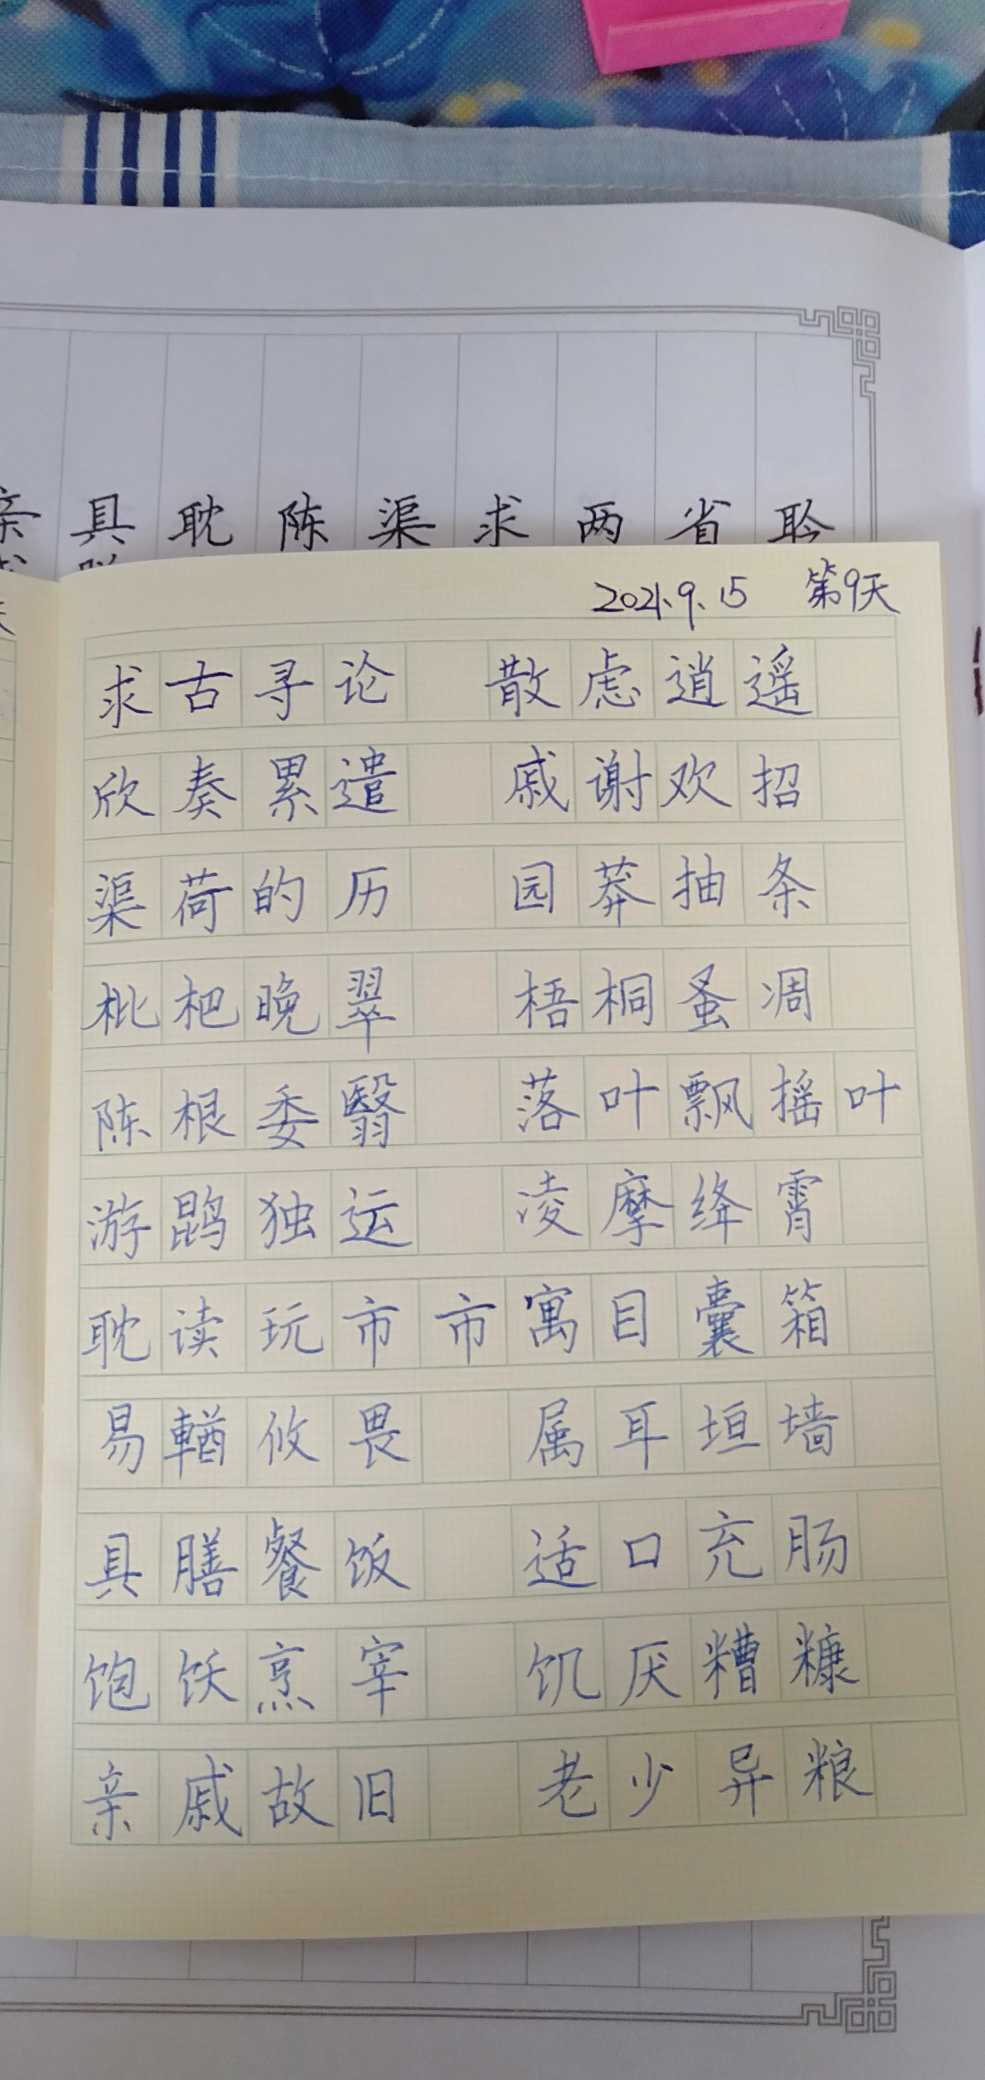 亲 具 耽 陈 渠 求 两 省 聆
2021.9.15 第9天
求古寻论 散虑逍遥
欣奏累遣 戚谢欢招
渠荷的历 园莽抽条
枇杷晚翠 梧桐蚤凋
陈根委翳 落叶飘摇叶
游鹍独运 凌摩绛霄
耽读玩市市寓目囊箱
易輶攸畏 属耳垣墙
具膳餐饭 适口充肠
饱饫烹宰 饥厌糟糠
亲戚故旧 老少异粮